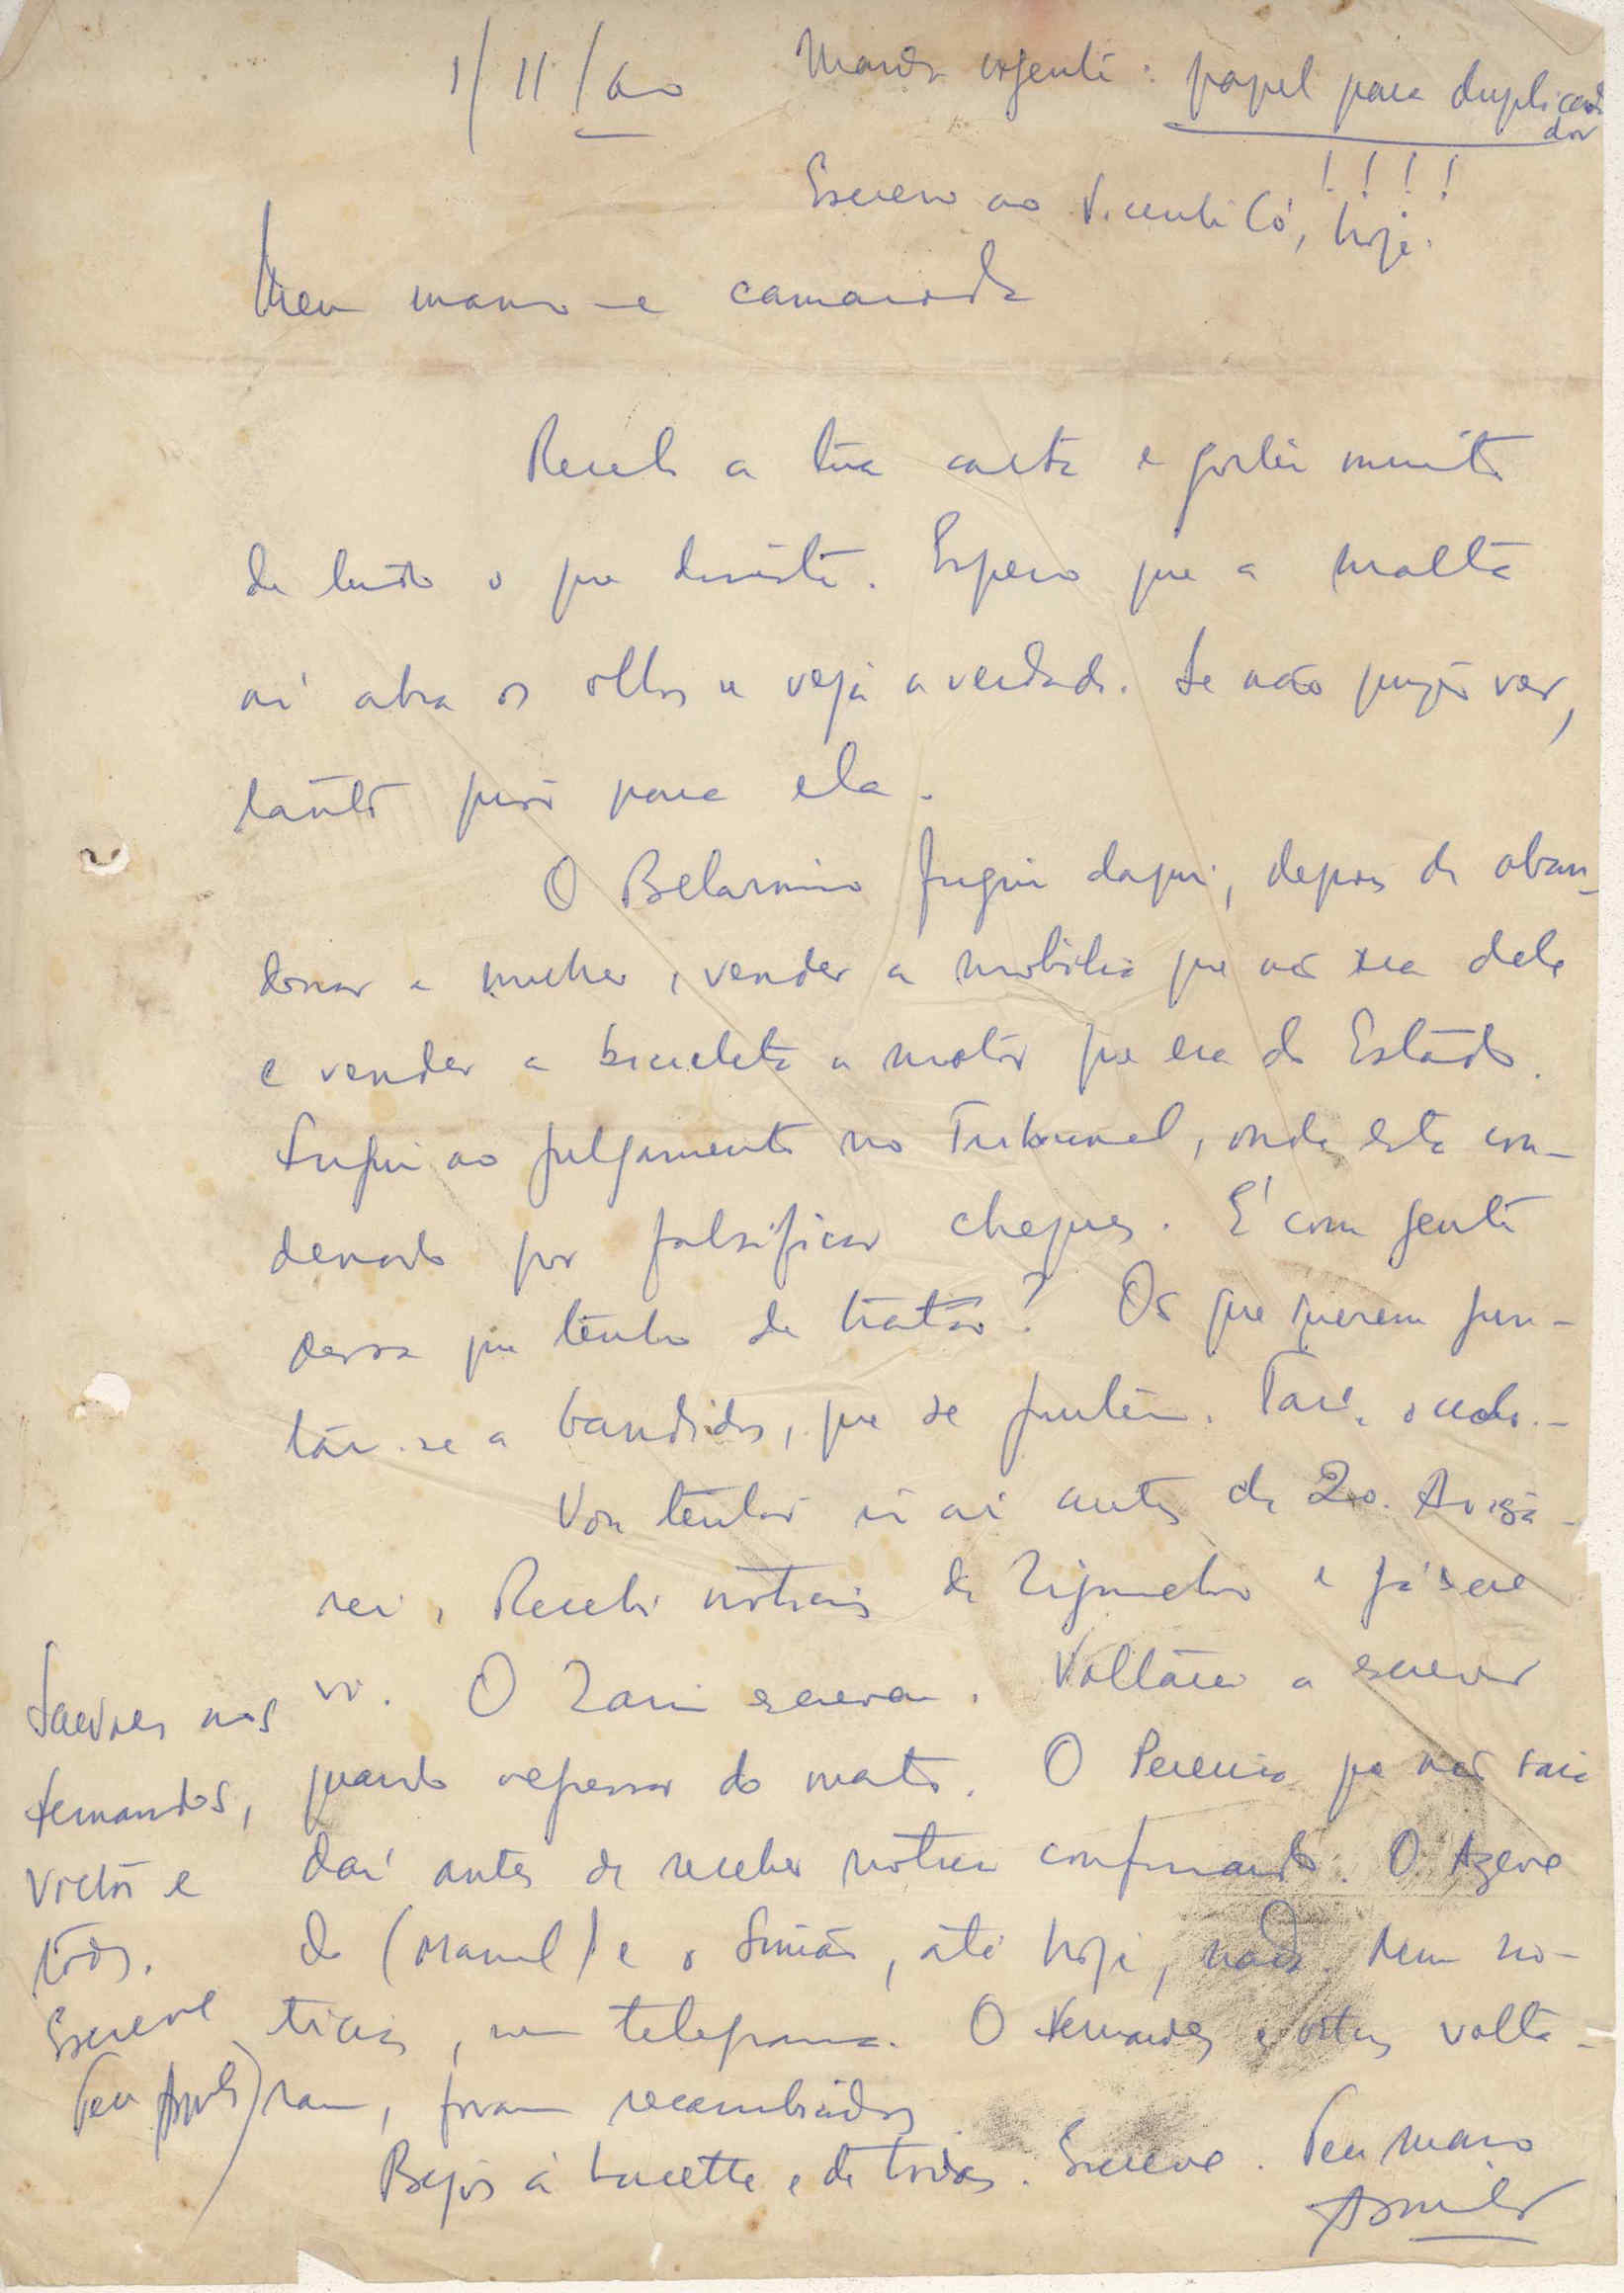 1/11/60
Manda urgente: papel para duplica
dor
!!!!
Escrevo ao Vicente Có, hoje.
Meu mano e camarada
Recebi a tua carta e gostei muito
de tudo o que disseste. Espero que a malta
aí abra os olhos e veja a verdade. Se não quizer ver,
tanto pior para ela.
O Belarmino fugiu daqui, depois de aban-
donar a mulher, vender a mobília que não era dele
e vender a bicicleta a motor que era do Estado.
Fugiu ao julgamento no Tribunal, onde está con-
denado por falsificar cheques. É com gente
dessa que tenho de tratar? Os que querem jun-
tar-se a bandidos, que se juntem.
Vou tentar ir aí antes de 20. Avisa-
rei. Recebi notícias de Ziguinchor e já escre
vi. O Zain escreveu. Voltarei a escrever
quando regressar do mato. O Pereira que não saia
daí antes de receber notícia confirmando. O Azeve
do (Manuel) e o Simão, até hoje, nada. Nem no-
tícias, nem telegrama. O Fernandes e outros volta-
ram, foram recambiados.
Beijos à Lucette e de todos. Escreve. Teu mano
Saudades aos
Fernandos,
Victor e
todos.
Escreve
Teu